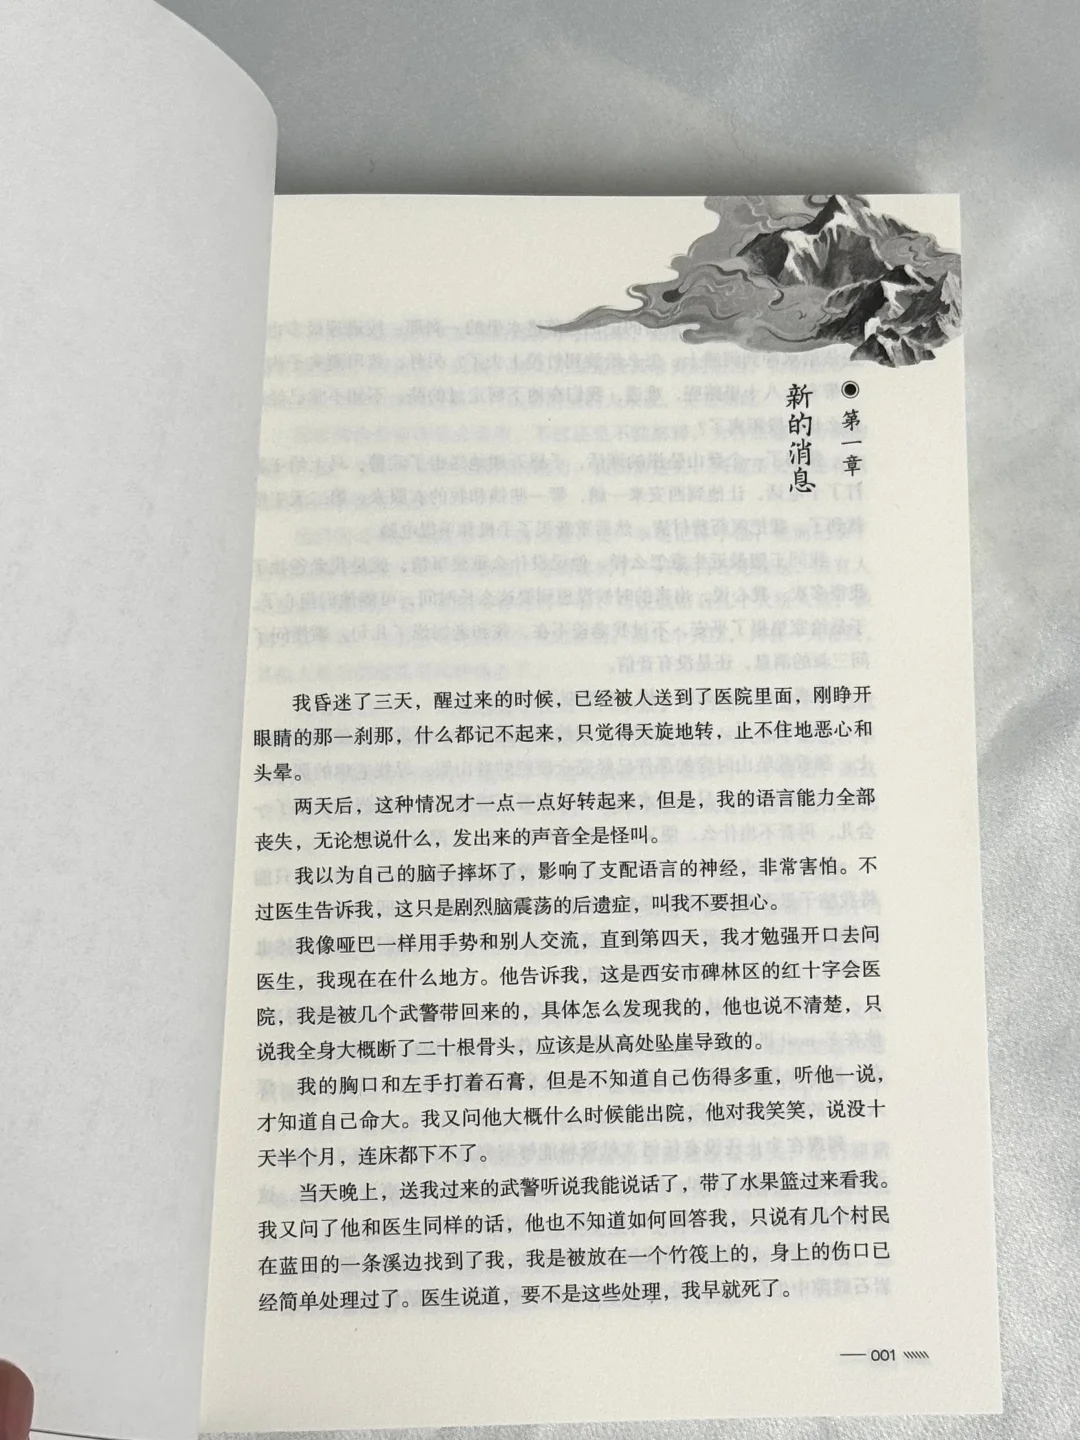 第一章
新的消息
我昏迷了三天，醒过来的时候，已经被人送到了医院里面，刚睁开
眼睛的那一刹那，什么都记不起来，只觉得天旋地转，止不住地恶心和
头晕。
两天后，这种情况才一点一点好转起来，但是，我的语言能力全部
丧失，无论想说什么，发出来的声音全是怪叫。
我以为自己的脑子摔坏了，影响了支配语言的神经，非常害怕。不
过医生告诉我，这只是剧烈脑震荡的后遗症，叫我不要担心。
我像哑巴一样用手势和别人交流，直到第四天，我才勉强开口去问
医生，我现在在什么地方。他告诉我，这是西安市碑林区的红十字会医
院，我是被几个武警带回来的，具体怎么发现我的，他也说不清楚，只
说我全身大概断了二十根骨头，应该是从高处坠崖导致的。
我的胸口和左手打着石膏，但是不知道自己伤得多重，听他一说，
才知道自己命大。我又问他大概什么时候能出院，他对我笑笑，说没十
天半个月，连床都下不了。
当天晚上，送我过来的武警听说我能说话了，带了水果篮过来看我。
我又问了他和医生同样的话，他也不知道如何回答我，只说有几个村民
在蓝田的一条溪边找到了我，我是被放在一个竹筏上的，身上的伤口已
经简单处理过了。医生说道，要不是这些处理，我早就死了。
001